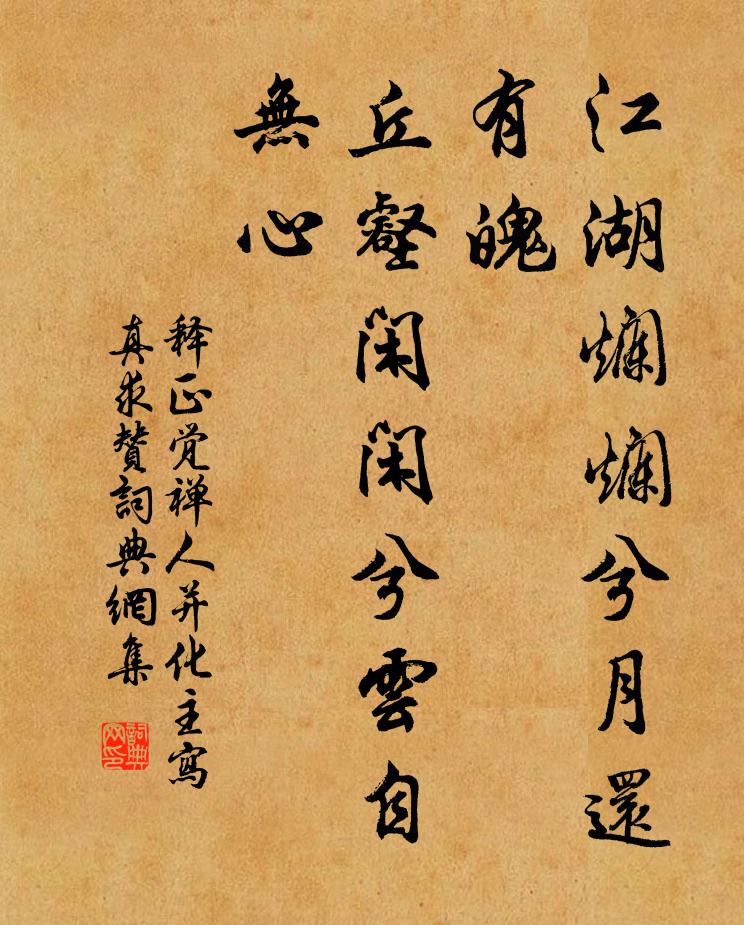 江湖爛爛兮月還
有魄
丘壑閑閑兮雲自
無心
释正觉禅人并化主寫
真求贊詞典網集
詞典網印